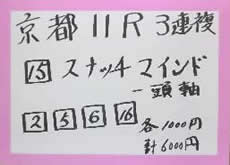 京都11R 3連複
15 スナッチマインド
一頭軸
2 5 6 16
各1000円
計6000円